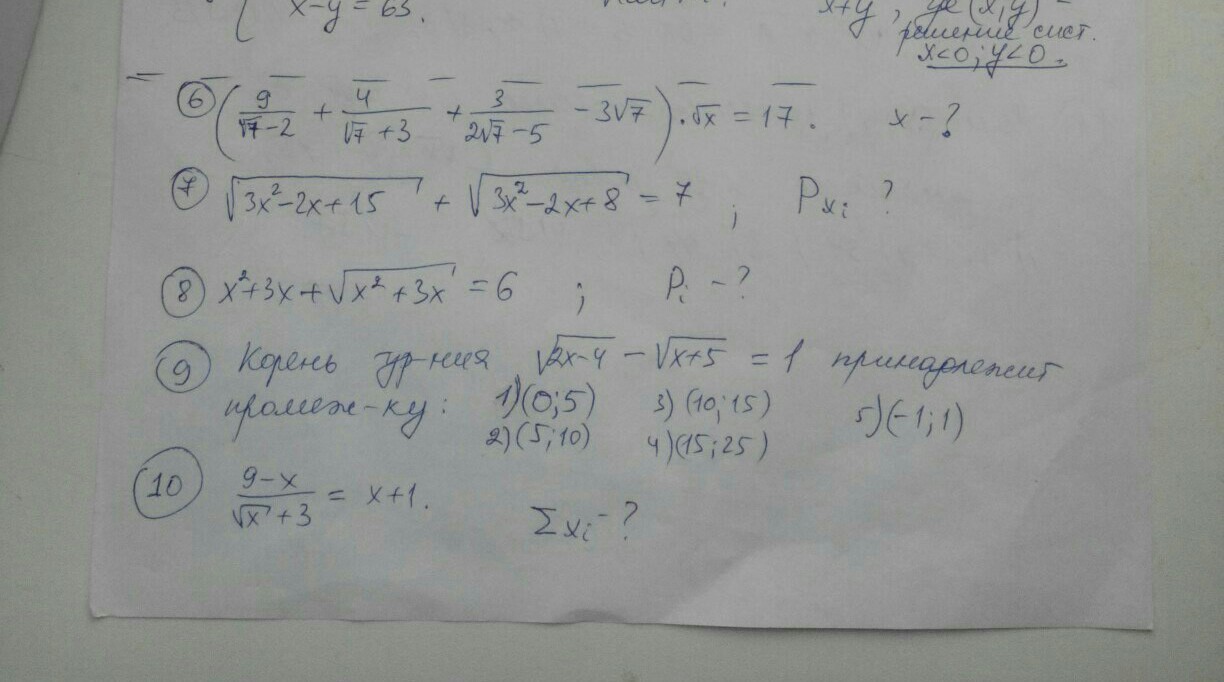 x-y = 63.
x+y, где (x,y) -
решение сист.
x<0; y<0.
⑥ (9/(√7-2) + 4/(√7+3) + 3/(2√7-5) - 3√7) · √x = 17. x - ?
⑦ √(3x²-2x+15) + √(3x²-2x+8) = 7 ; Pxᵢ ?
⑧ x²+3x+√(x²+3x) = 6 ; Pᵢ - ?
⑨ Корень ур-ния √(2x-4) - √(x+5) = 1 принадлежит
промеж-ку: 1)(0;5) 3)(10;15) 5)(-1;1)
2)(5;10) 4)(15;25)
⑩ (9-x)/(√x+3) = x+1. Σxᵢ - ?